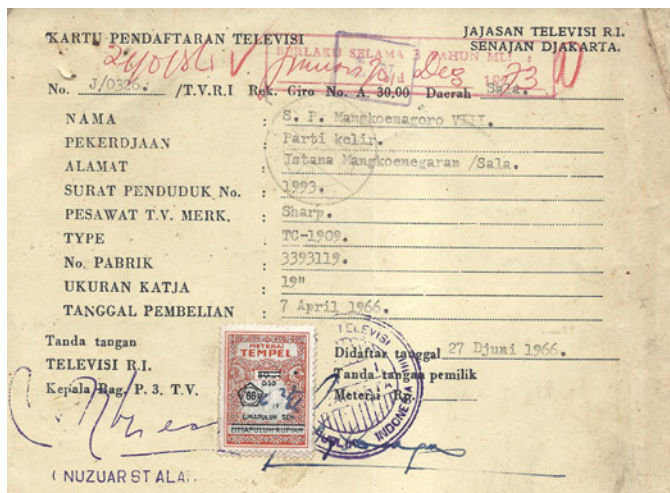 KARTU PENDAFTARAN TELEVISI
JAJASAN TELEVISI R.I.
SENAJAN DJAKARTA.
BERLAKU SELAMA 3 TAHUN MULAI
Januari 71 s/d Des 1973
No. J/0326. /T.V.R.I Rek. Giro No. A. 30.00 Daerah Sala.
NAMA : S. P. Mangkoenagoro VIII.
PEKERDJAAN : Parti kelir.
ALAMAT : Istana Mangkoenegaran /Sala.
SURAT PENDUDUK No. : 1993.
PESAWAT T.V. MERK. : Sharp.
TYPE : TC-1909.
No. PABRIK : 3393119.
UKURAN KATJA : 19"
TANGGAL PEMBELIAN : 7 April 1966.
Tanda tangan
TELEVISI R.I.
Kepala Bag. P. 3. T.V.
METERAI
TEMPEL
LIMAPULUH SEN
Didaftar tanggal 27 Djuni 1966.
Tanda tangan pemilik
Meterai Rp.
TELEVISI
INDONESIA
( NUZUAR ST ALA